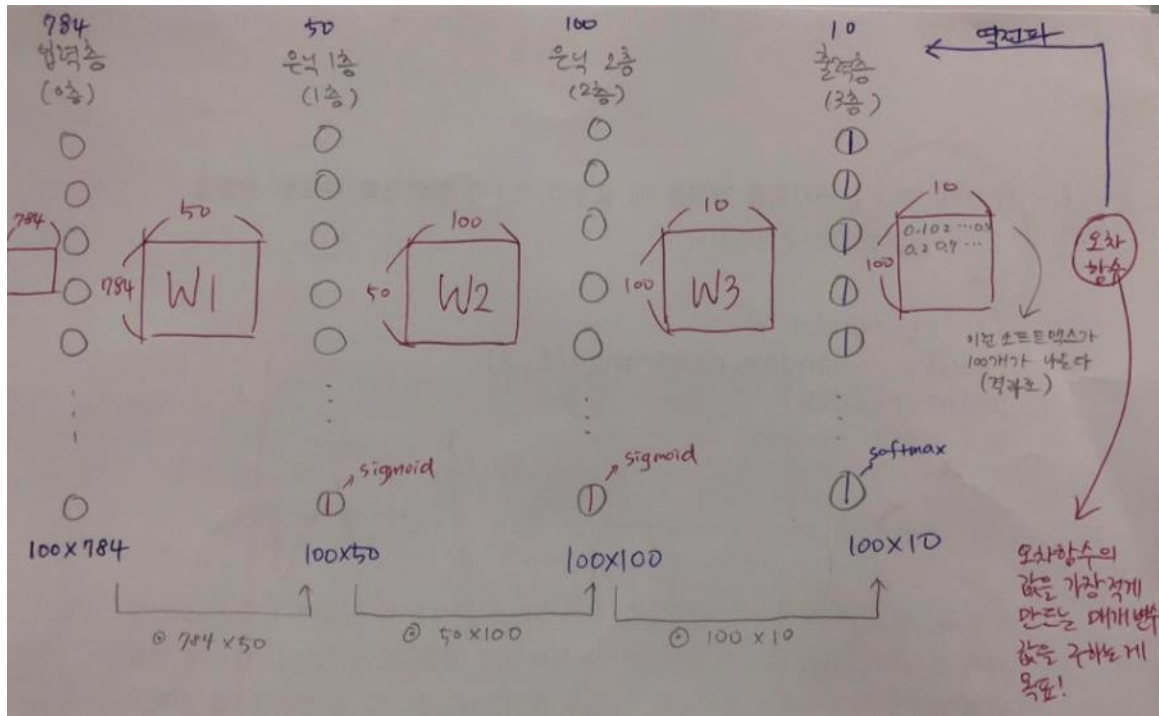 784
입력층
(0층)
50
은닉 1층
(1층)
100
은닉 2층
(2층)
10
출력층
(3층)
역전파
784
784
50
W1
50
100
W2
100
10
W3
100
10
0.1 0.2 ... 0.1
0.2 0.7 ...
오차
함수
이런 소프트맥스가
100개가 나온다
(결과로)
sigmoid
sigmoid
softmax
100×784
100×50
100×100
100×10
⊙ 784×50
⊙ 50×100
⊙ 100×10
오차함수의
값을 가장 적게
만드는 매개변수
값을 구하는게
목표!